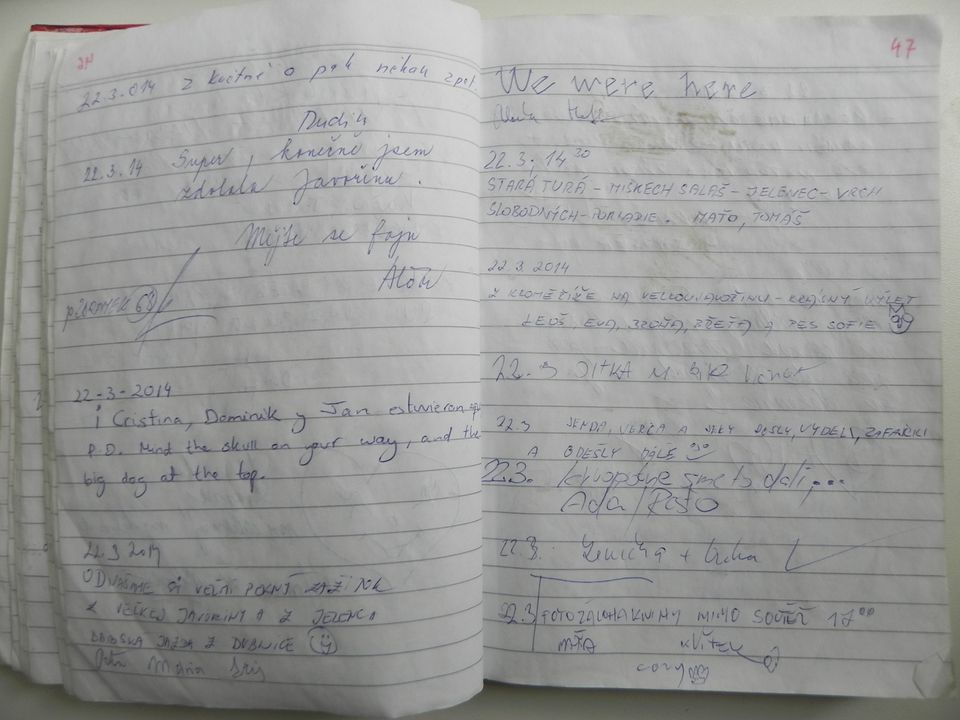 22.3.014 z Květné a pak někam zpět.
Dudík
22.3.14 Super, konečně jsem
zdolala Javořinu.
Mějte se fajn
22-3-2014
¡ Cristina, Dominik y Jan estuvieron
P.D. Mind the skull on your way, and the
big dog at the top.
22.3 2014
ODNÁŠAME SI VEĽMI PEKNÝ ZÁŽITOK
Z VEĽKEJ JAVORINY A Z JELENCA
Z DUBNICE
Mária
47
We were here
22.3. 14 30
STARÁ TURÁ - MIŠKECH SALAŠ - JELENEC - VRCH
SLOBODNÝCH - . MAŤO, TOMÁŠ
22.3.2014
Z KROMĚŘÍŽE NA VELKOU JAVOŘINU - KRÁSNÝ VÝLET
LEOŠ, EVA, BŘEŤA A PES SOFIE
22.3 JITKA
22.3 JENDA, VERČA A DOŠLY, VYDĚLI, ZAFAJČILI
A ODEŠLY DÁLE
22.3. smeto dali,...
Ada / Raťo
22.3. Lenička +
22.3 FOTOZÁLOHA KNIHY MIMO SOUTĚŽ 17 00
MÁŤA KVÍTEK
cory